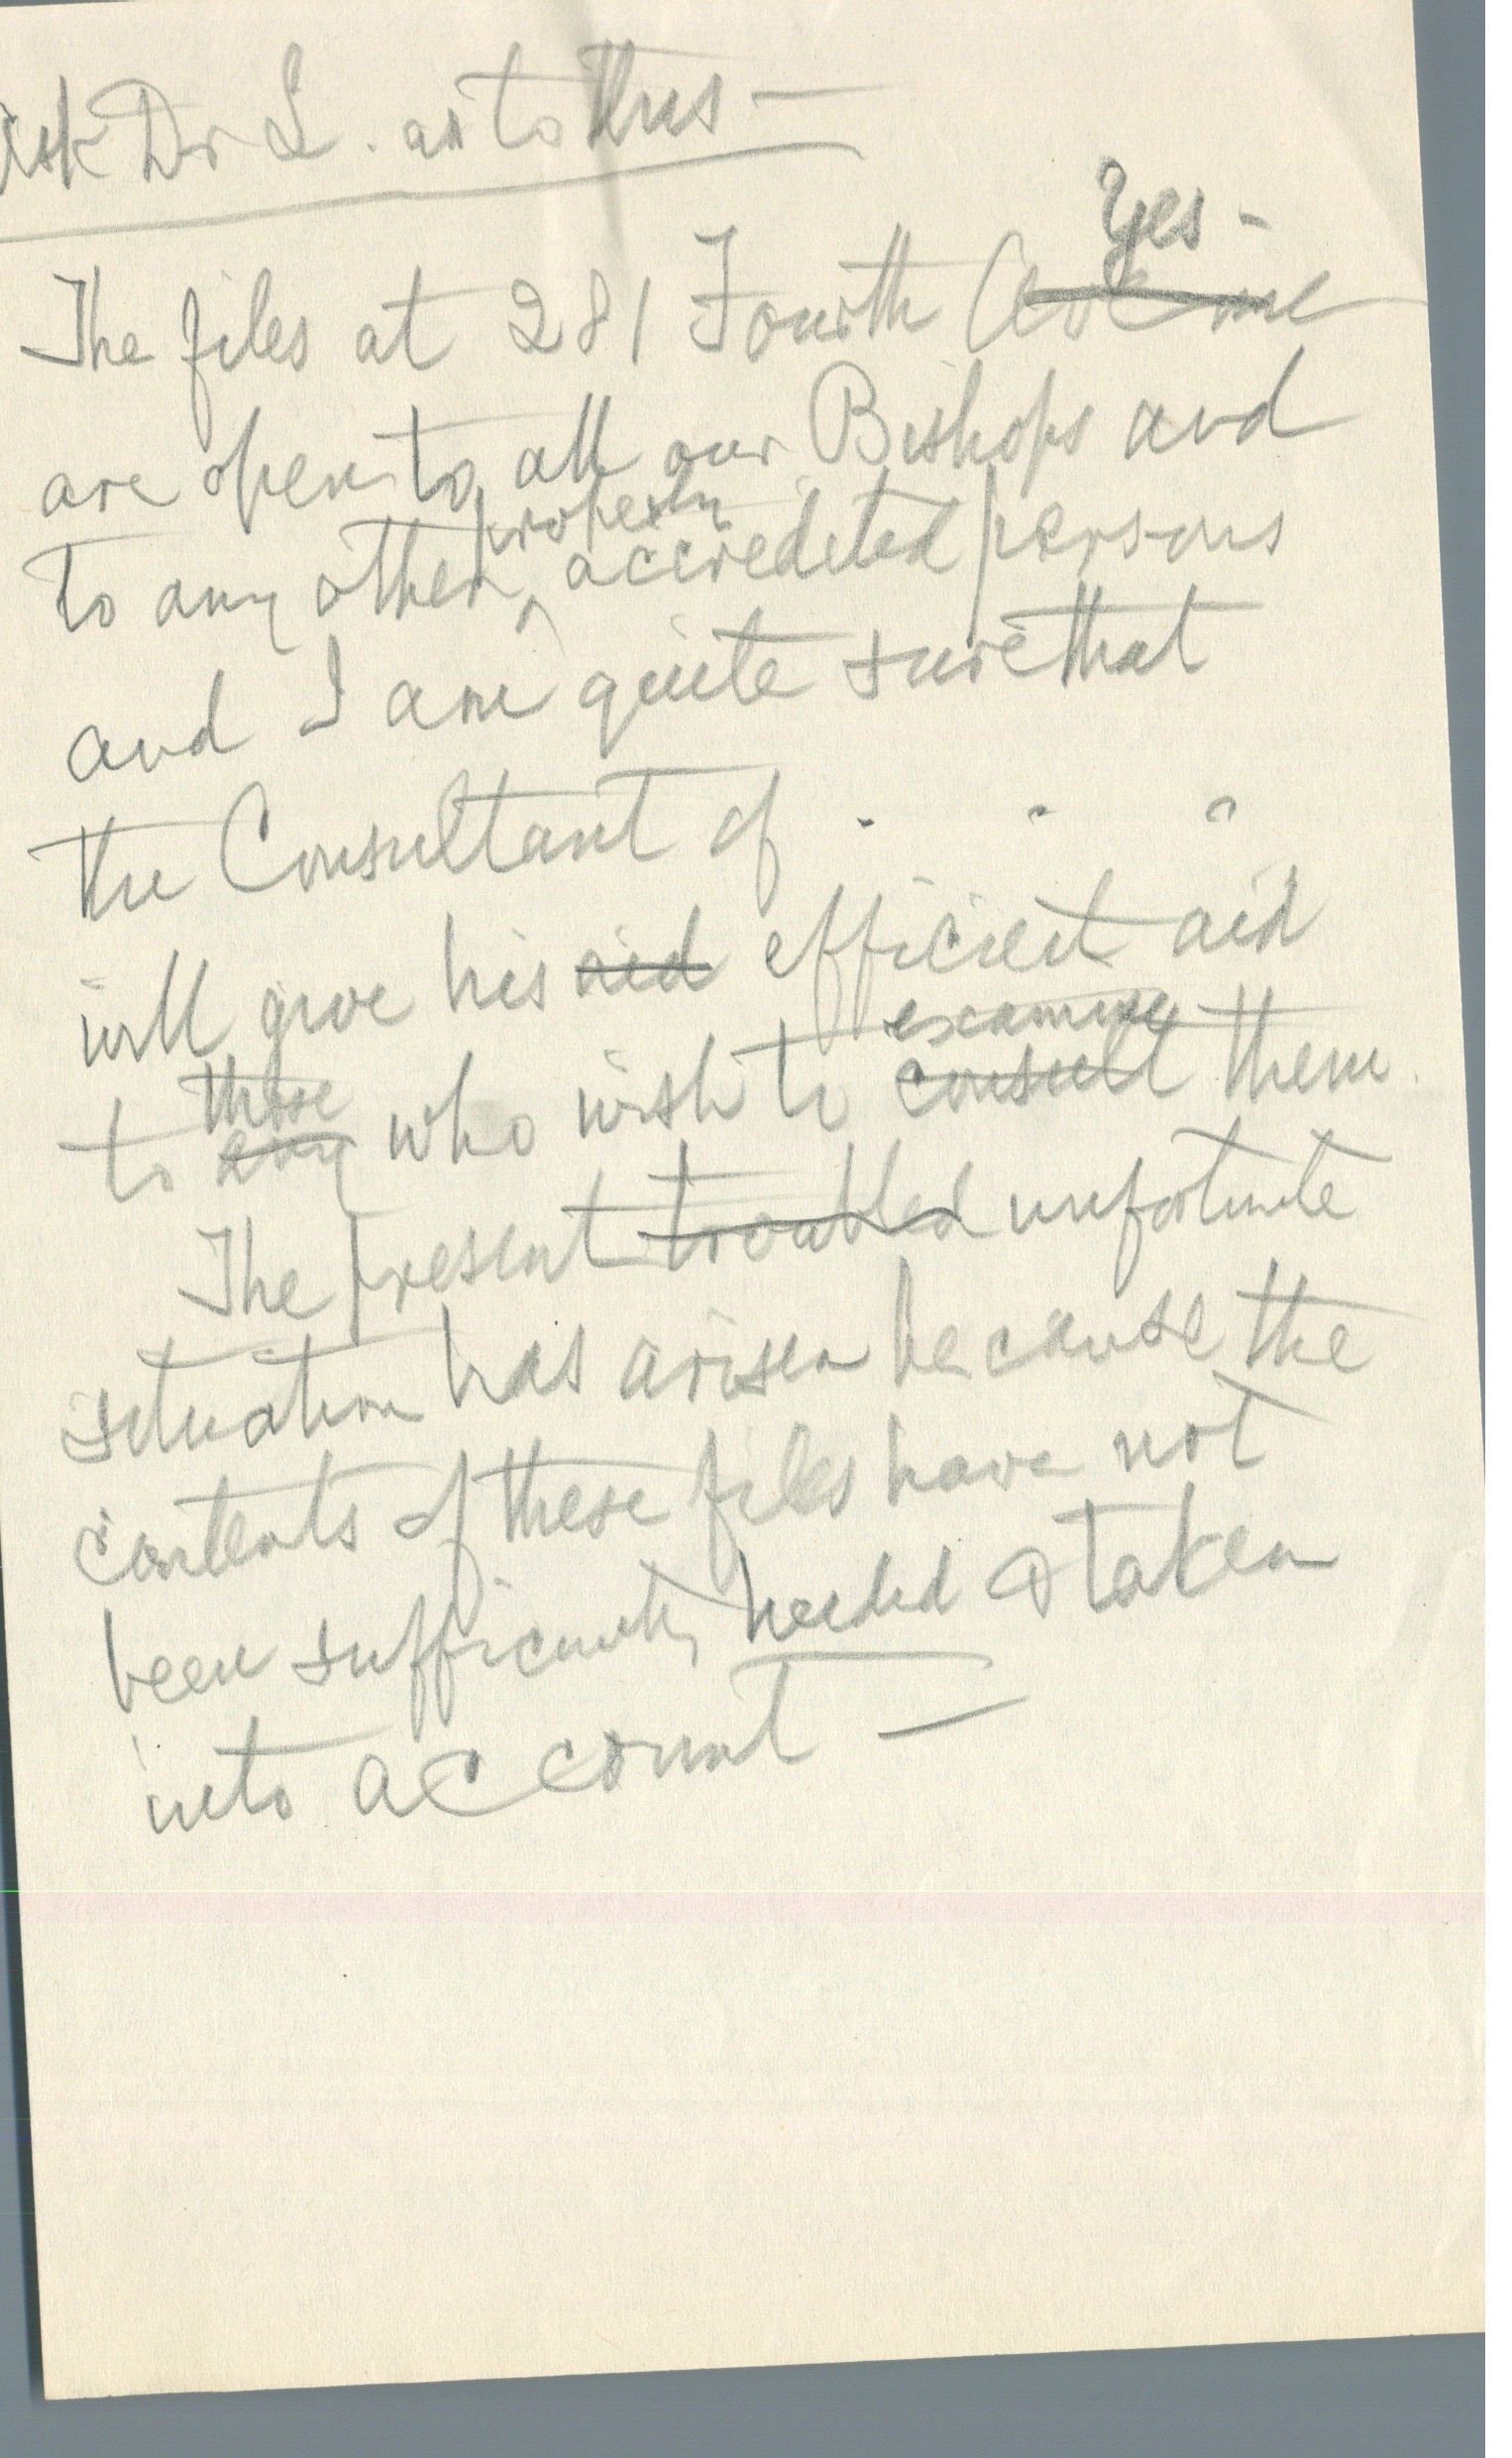 Ask Dr L. as to this —
Yes -
The files at 281 Fourth Avenue
are open to all our Bishops and
properly
to any other ^ accredited persons
and I am quite sure that
the Consultant of . . .
will give his aid efficient aid
examine
those
to any who wish to consult them.
The present troubled unfortunate
situation has arisen because the
contents of these files have not
been sufficiently heeded & taken
into account —